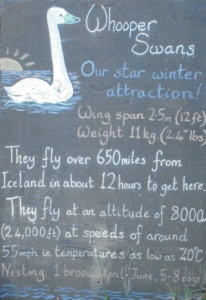 Whooper
Swans
Our star winter
attraction!
Wing span 2·5m (12ft)
Weight 11kg (24lbs)
They fly over 650miles from
Iceland in about 12 hours to get here.
They fly at an altitude of 8000
(24,000ft) at speeds of around
55mph in temperatures as low as
Nesting: 1 brood, April-June, 5-8 eggs